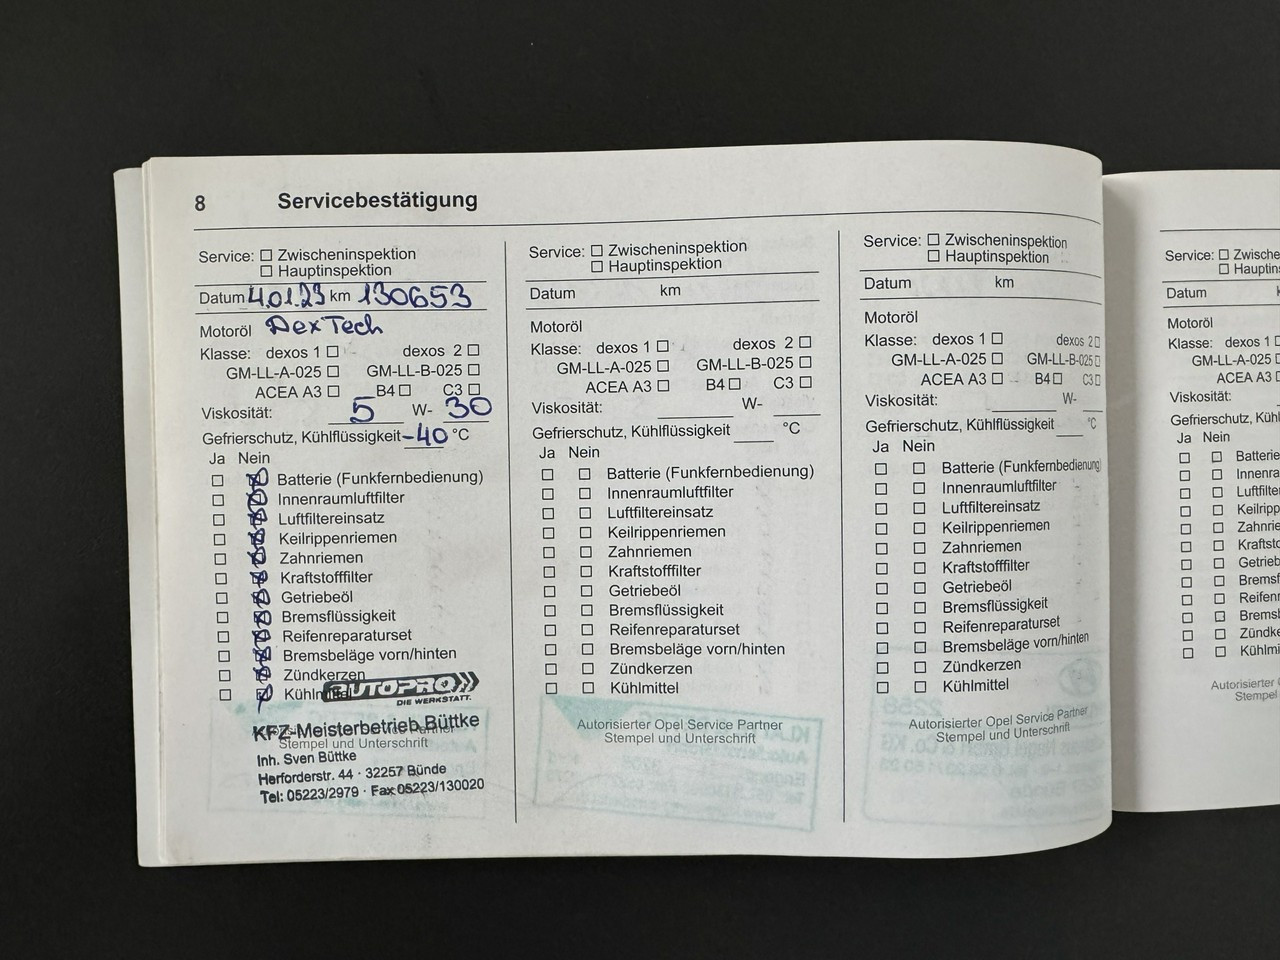 8 Servicebestätigung
Service: ☐ Zwischeninspektion
☐ Hauptinspektion
Datum 4.01.23 km 130653
Motoröl DexTech
Klasse: dexos 1 ☐ dexos 2 ☐
GM-LL-A-025 ☐ GM-LL-B-025 ☐
ACEA A3 ☐ B4 ☐ C3 ☐
Viskosität: 5 W- 30
Gefrierschutz, Kühlflüssigkeit -40 °C
Ja Nein
Batterie (Funkfernbedienung)
Innenraumluftfilter
Luftfiltereinsatz
Keilrippenriemen
Zahnriemen
Kraftstofffilter
Getriebeöl
Bremsflüssigkeit
Reifenreparaturset
Bremsbeläge vorn/hinten
Zündkerzen
Kühlmittel
AUTOPRO
DIE WERKSTATT.
KFZ-Meisterbetrieb Büttke
Stempel und Unterschrift
Inh. Sven Büttke
Herforderstr. 44 · 32257 Bünde
Tel: 05223/2979 · Fax 05223/130020
Service: ☐ Zwischeninspektion
☐ Hauptinspektion
Datum km
Motoröl
Klasse: dexos 1 ☐ dexos 2 ☐
GM-LL-A-025 ☐ GM-LL-B-025 ☐
ACEA A3 ☐ B4 ☐ C3 ☐
Viskosität: W-
Gefrierschutz, Kühlflüssigkeit °C
Ja Nein
Batterie (Funkfernbedienung)
Innenraumluftfilter
Luftfiltereinsatz
Keilrippenriemen
Zahnriemen
Kraftstofffilter
Getriebeöl
Bremsflüssigkeit
Reifenreparaturset
Bremsbeläge vorn/hinten
Zündkerzen
Kühlmittel
Autorisierter Opel Service Partner
Stempel und Unterschrift
Service: ☐ Zwischeninspektion
☐ Hauptinspektion
Datum km
Motoröl
Klasse: dexos 1 ☐ dexos 2 ☐
GM-LL-A-025 ☐ GM-LL-B-025 ☐
ACEA A3 ☐ B4 ☐ C3 ☐
Viskosität: W-
Gefrierschutz, Kühlflüssigkeit °C
Ja Nein
Batterie (Funkfernbedienung)
Innenraumluftfilter
Luftfiltereinsatz
Keilrippenriemen
Zahnriemen
Kraftstofffilter
Getriebeöl
Bremsflüssigkeit
Reifenreparaturset
Bremsbeläge vorn/hinten
Zündkerzen
Kühlmittel
Autorisierter Opel Service Partner
Stempel und Unterschrift
Service: ☐ Zwische
☐ Hauptin
Datum
Motoröl
Klasse: dexos 1
GM-LL-A-025
ACEA A3
Viskosität:
Gefrierschutz, Kühl
Ja Nein
Batterie
Innenra
Luftfilte
Keilripp
Zahnrie
Kraftsto
Getrieb
Bremsf
Reifenr
Bremsb
Zündke
Kühlmi
Autorisierter
Stempel